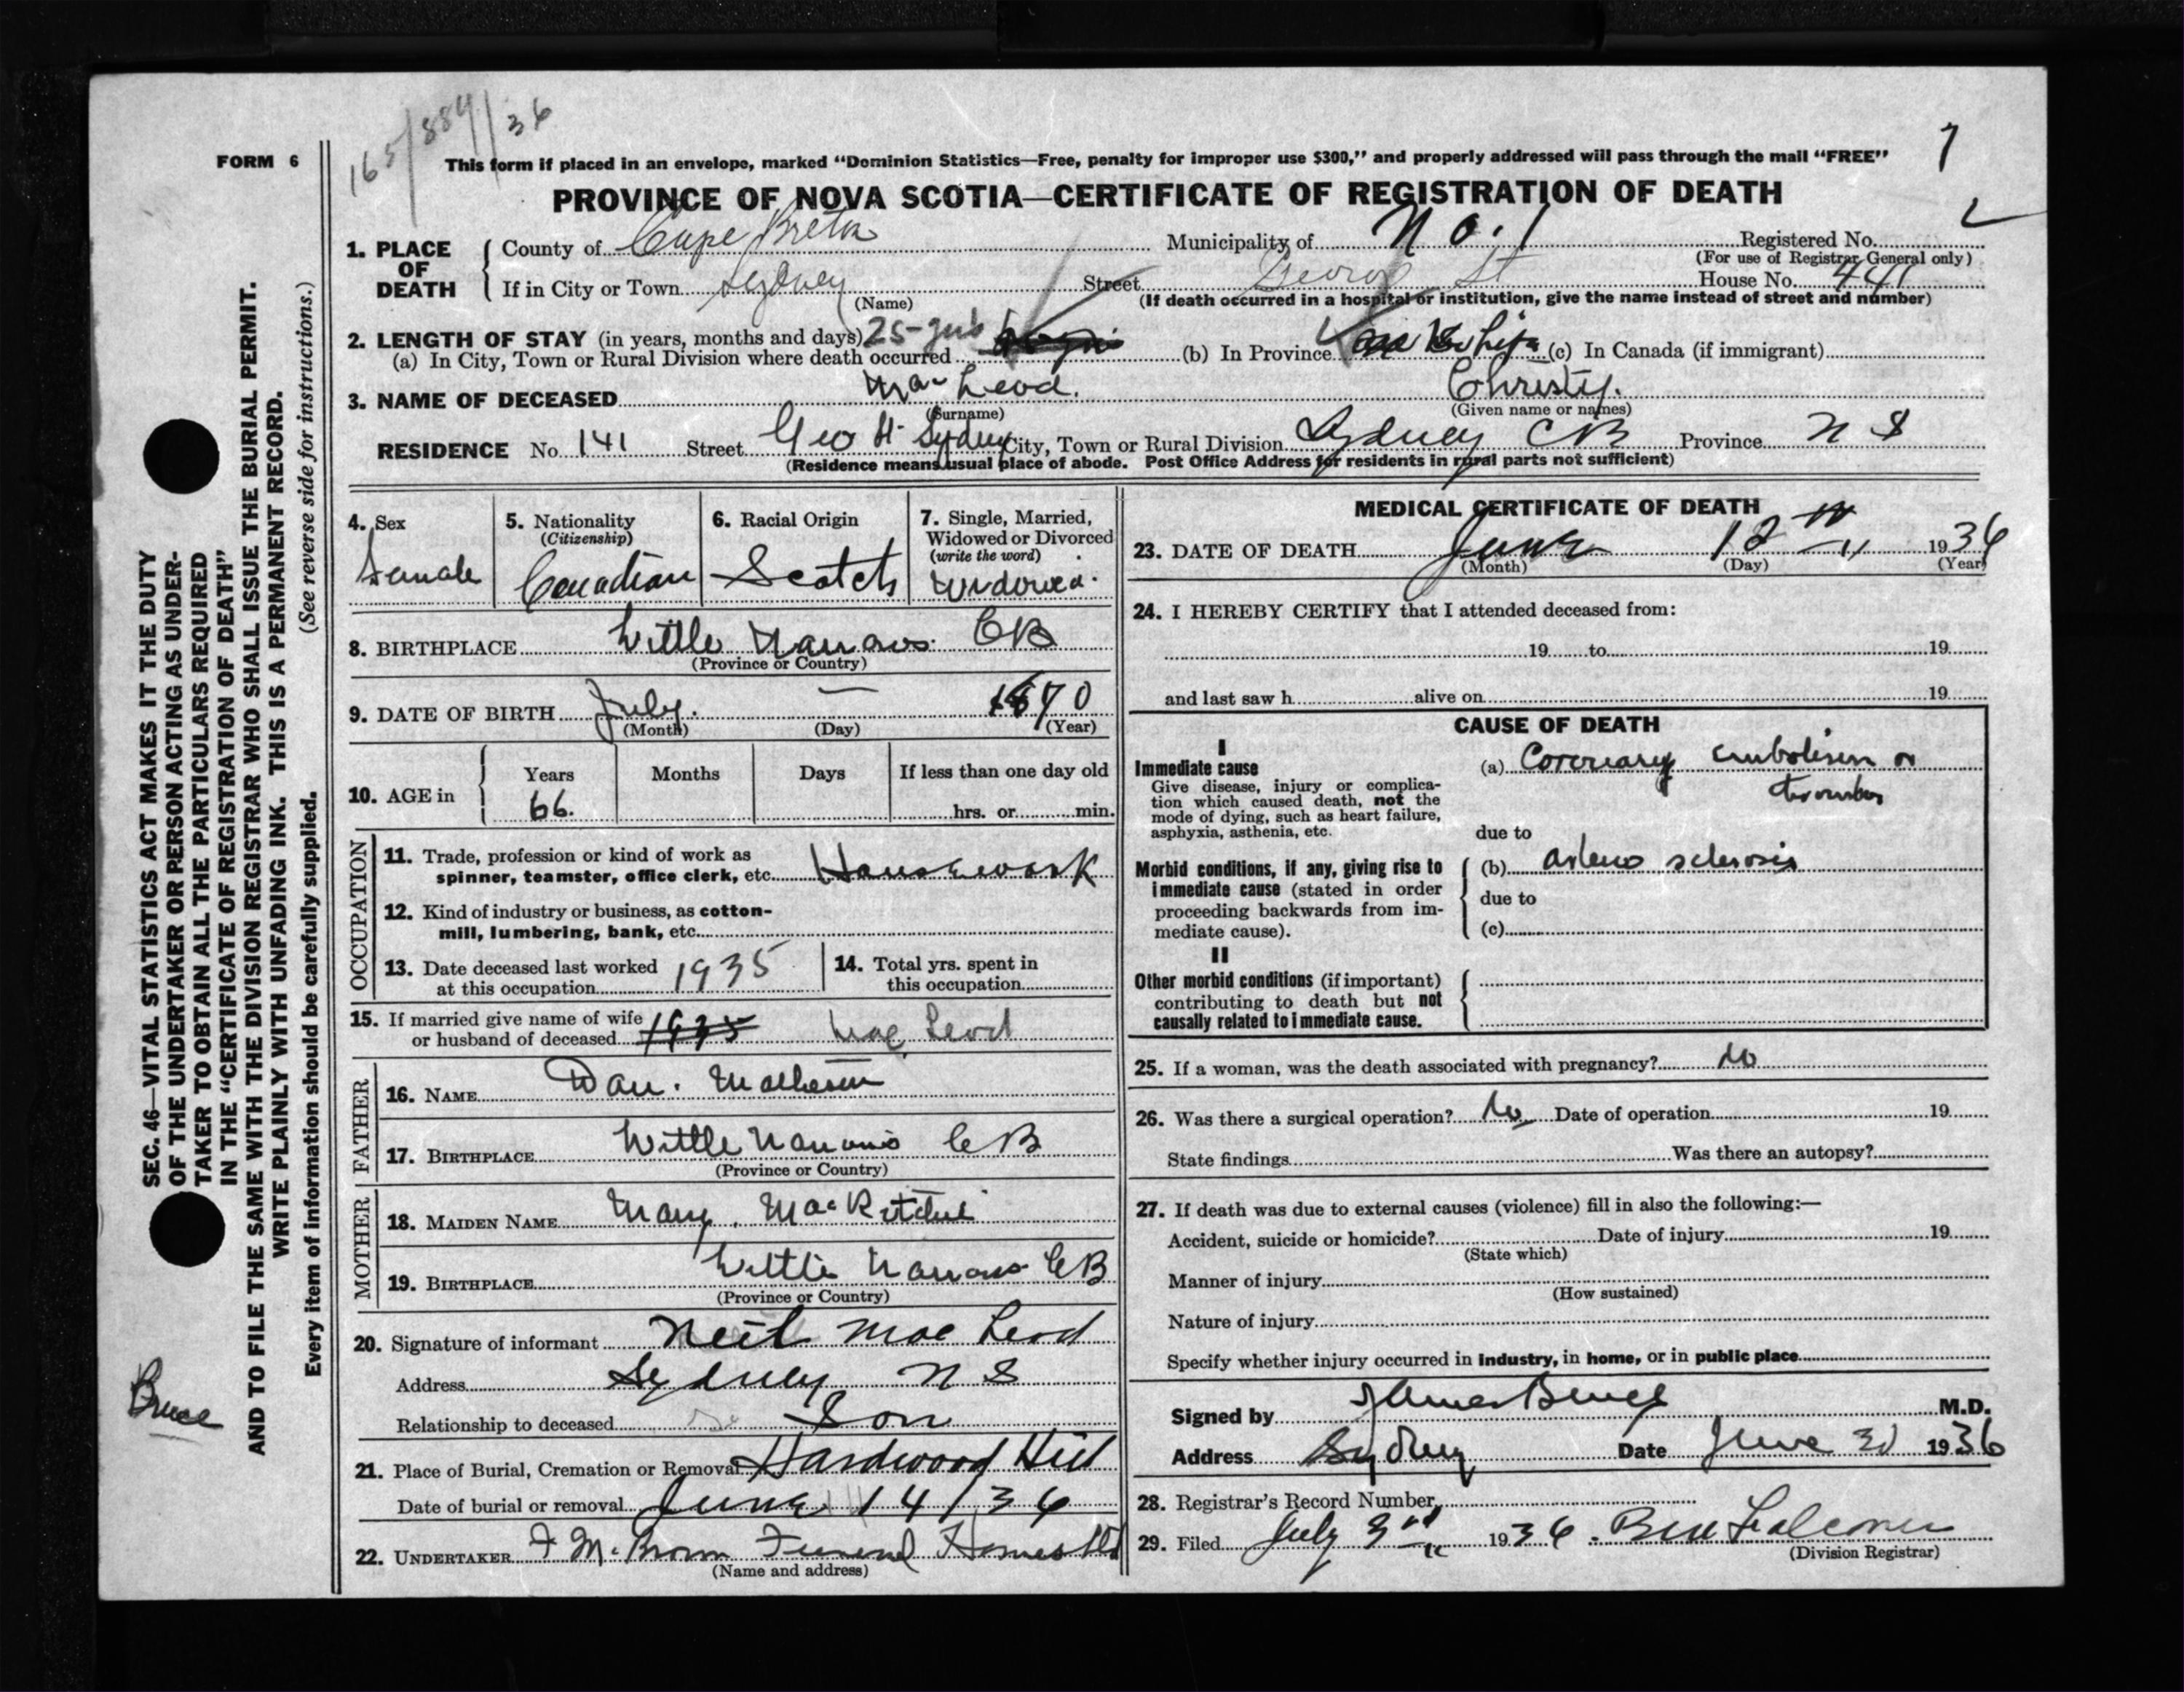 165/884/36
7
FORM 6
This form if placed in an envelope, marked "Dominion Statistics—Free, penalty for improper use $300," and properly addressed will pass through the mail "FREE"
PROVINCE OF NOVA SCOTIA—CERTIFICATE OF REGISTRATION OF DEATH
1. PLACE OF DEATH
County of Cape Breton Municipality of No. 1 Registered No.
(For use of Registrar General only)
If in City or Town Sydney Street George St House No. 441
(Name) (If death occurred in a hospital or institution, give the name instead of street and number)
2. LENGTH OF STAY (in years, months and days) 25-yrs
(a) In City, Town or Rural Division where death occurred (b) In Province Life (c) In Canada (if immigrant)
3. NAME OF DECEASED MacLeod. Christy.
(Surname) (Given name or names)
RESIDENCE No. 141 Street Geo St Sydney City, Town or Rural Division Sydney CB Province N S
(Residence means usual place of abode. Post Office Address for residents in rural parts not sufficient)
4. Sex
Female
5. Nationality
(Citizenship)
Canadian
6. Racial Origin
Scotch
7. Single, Married,
Widowed or Divorced
(write the word)
Widowed.
8. BIRTHPLACE Little Narrows CB
(Province or Country)
9. DATE OF BIRTH July. — 1870
(Month) (Day) (Year)
10. AGE in
Years Months Days If less than one day old
66. hrs. or min.
OCCUPATION
11. Trade, profession or kind of work as
spinner, teamster, office clerk, etc. Housework
12. Kind of industry or business, as cotton-
mill, lumbering, bank, etc.
13. Date deceased last worked
at this occupation 1935
14. Total yrs. spent in
this occupation
15. If married give name of wife
or husband of deceased 1935 MacLeod
FATHER
16. NAME Dan. Matheson
17. BIRTHPLACE Little Narrows CB
(Province or Country)
MOTHER
18. MAIDEN NAME Mary. MacRitchie
19. BIRTHPLACE Little Narrows CB
(Province or Country)
20. Signature of informant Neil MacLeod
Address Sydney N S
Relationship to deceased Son
21. Place of Burial, Cremation or Removal Hardwood Hill
Date of burial or removal June 14/36
22. UNDERTAKER F M. Brown Funeral Homes Ltd
(Name and address)
MEDICAL CERTIFICATE OF DEATH
23. DATE OF DEATH June 12th 1936
(Month) (Day) (Year)
24. I HEREBY CERTIFY that I attended deceased from:
19 to 19
and last saw h alive on 19
CAUSE OF DEATH
I
Immediate cause
Give disease, injury or complica-
tion which caused death, not the
mode of dying, such as heart failure,
asphyxia, asthenia, etc.
(a) Coronary embolism or
thrombos
due to
Morbid conditions, if any, giving rise to
immediate cause (stated in order
proceeding backwards from im-
mediate cause).
(b) arterio sclerosis
due to
(c)
II
Other morbid conditions (if important)
contributing to death but not
causally related to immediate cause.
25. If a woman, was the death associated with pregnancy? No
26. Was there a surgical operation? No Date of operation 19
State findings Was there an autopsy?
27. If death was due to external causes (violence) fill in also the following:—
Accident, suicide or homicide? Date of injury 19
(State which)
Manner of injury
(How sustained)
Nature of injury
Specify whether injury occurred in industry, in home, or in public place
Signed by James Bruce M.D.
Address Sydney Date June 30 1936
28. Registrar's Record Number
29. Filed July 3rd 1936. Ben Falconer
(Division Registrar)
SEC. 46—VITAL STATISTICS ACT MAKES IT THE DUTY
OF THE UNDERTAKER OR PERSON ACTING AS UNDER-
TAKER TO OBTAIN ALL THE PARTICULARS REQUIRED
IN THE "CERTIFICATE OF REGISTRATION OF DEATH"
AND TO FILE THE SAME WITH THE DIVISION REGISTRAR WHO SHALL ISSUE THE BURIAL PERMIT.
WRITE PLAINLY WITH UNFADING INK. THIS IS A PERMANENT RECORD.
(See reverse side for instructions.)
Every item of information should be carefully supplied.
Bruce